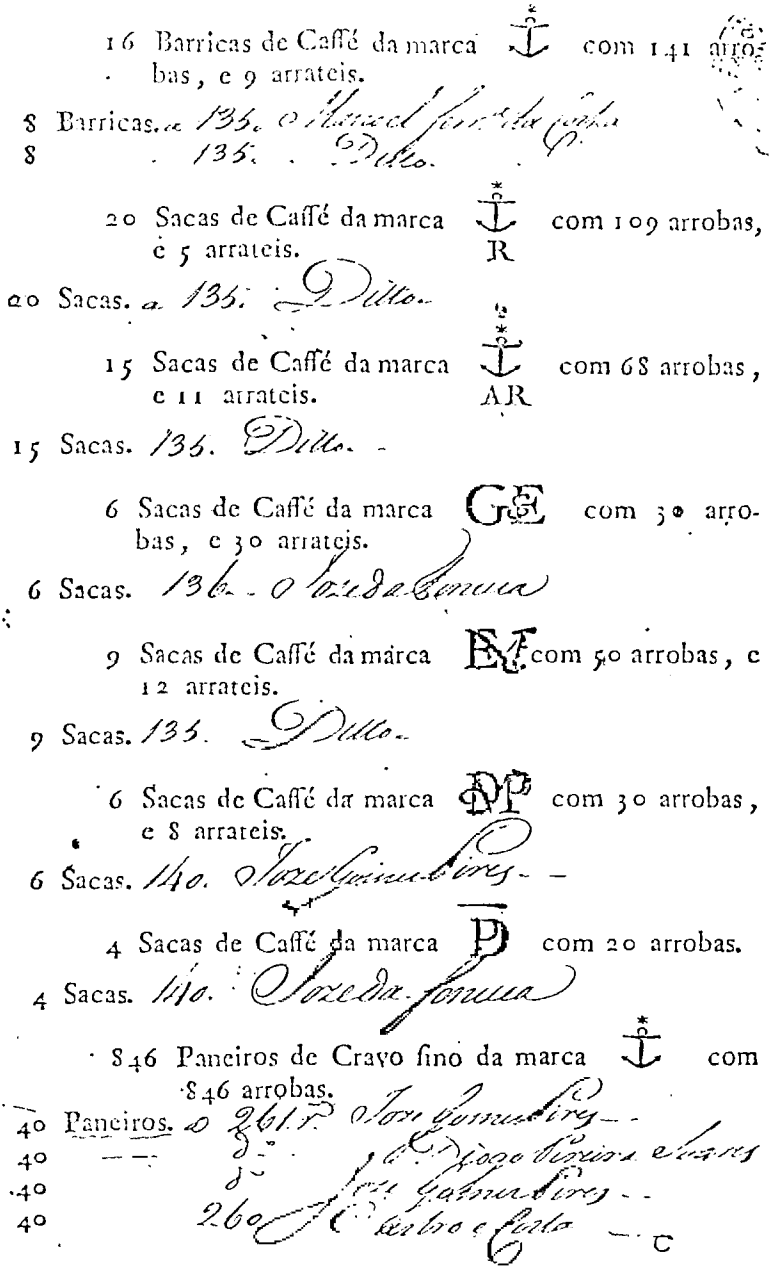 16 Barricas de Caffé da marca com 141 arro-
bas, e 9 arrateis.
8 Barricas. a 135. o Manoel Ferra. da Costa
8 135. Ditto.
20 Sacas de Caffé da marca com 109 arrobas,
e 5 arrateis. R
20 Sacas. a 135. Ditto.
15 Sacas de Caffé da marca com 68 arrobas,
e 11 arrateis. AR
15 Sacas. 135. Ditto.
6 Sacas de Caffé da marca GE com 30 arro-
bas, e 30 arrateis.
6 Sacas. 136. Joze da Fonceca
9 Sacas de Caffé da marca com 50 arrobas, e
12 arrateis.
9 Sacas. 135. Ditto.
6 Sacas de Caffé da marca com 30 arrobas,
e 8 arrateis.
6 Sacas. 140. Joze Gomes Pires
4 Sacas de Caffé da marca PD com 20 arrobas.
4 Sacas. 140. Joze da Fonceca
846 Paneiros de Cravo fino da marca com
846 arrobas.
40 Paneiros. a 261 r. Joze Gomes Pires
40 do. Diogo Pereira Soares
40 do. Joze Gomes Pires
40 260 Castro e Costa
C